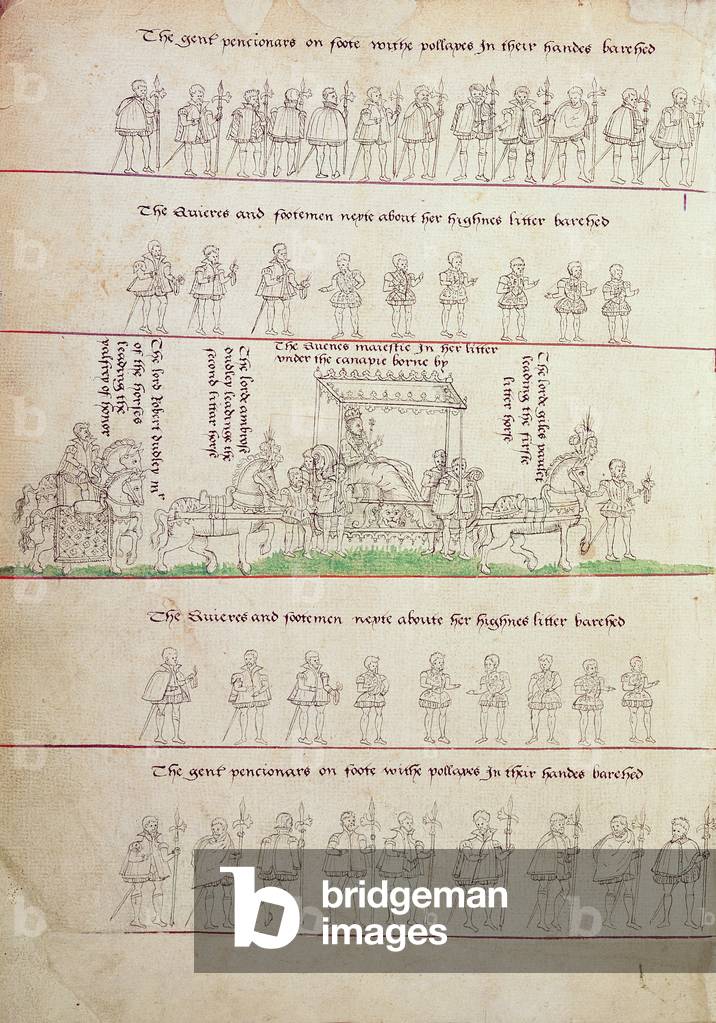 The gent pencionars on foote withe pollaxes In their handes barehed
The Quieres and footemen nexte about her highnes litter barehed
The lord Robert dudley mr
of the horses
leading the
palfrey of honor
The lorde ambrose
dudley leadinge the
second litter horse
The Quenes maiestie In her litter
vnder the canapie borne by
The lorde giles paulet
leading the firste
litter horse
The Quieres and footemen nexte aboute her highnes litter barehed
The gent pencionars on foote withe pollaxes In their handes barehed
bridgeman
images